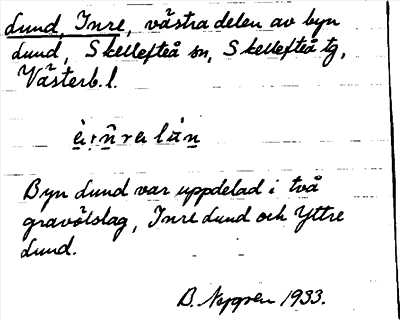 Lund, Inre, västra delen av byn
Lund, Skellefteå sn, Skellefteå tg,
Västerb. l.
Byn Lund var uppdelad i två
gravölslag, Inre Lund och Yttre
Lund.
B. 1933.